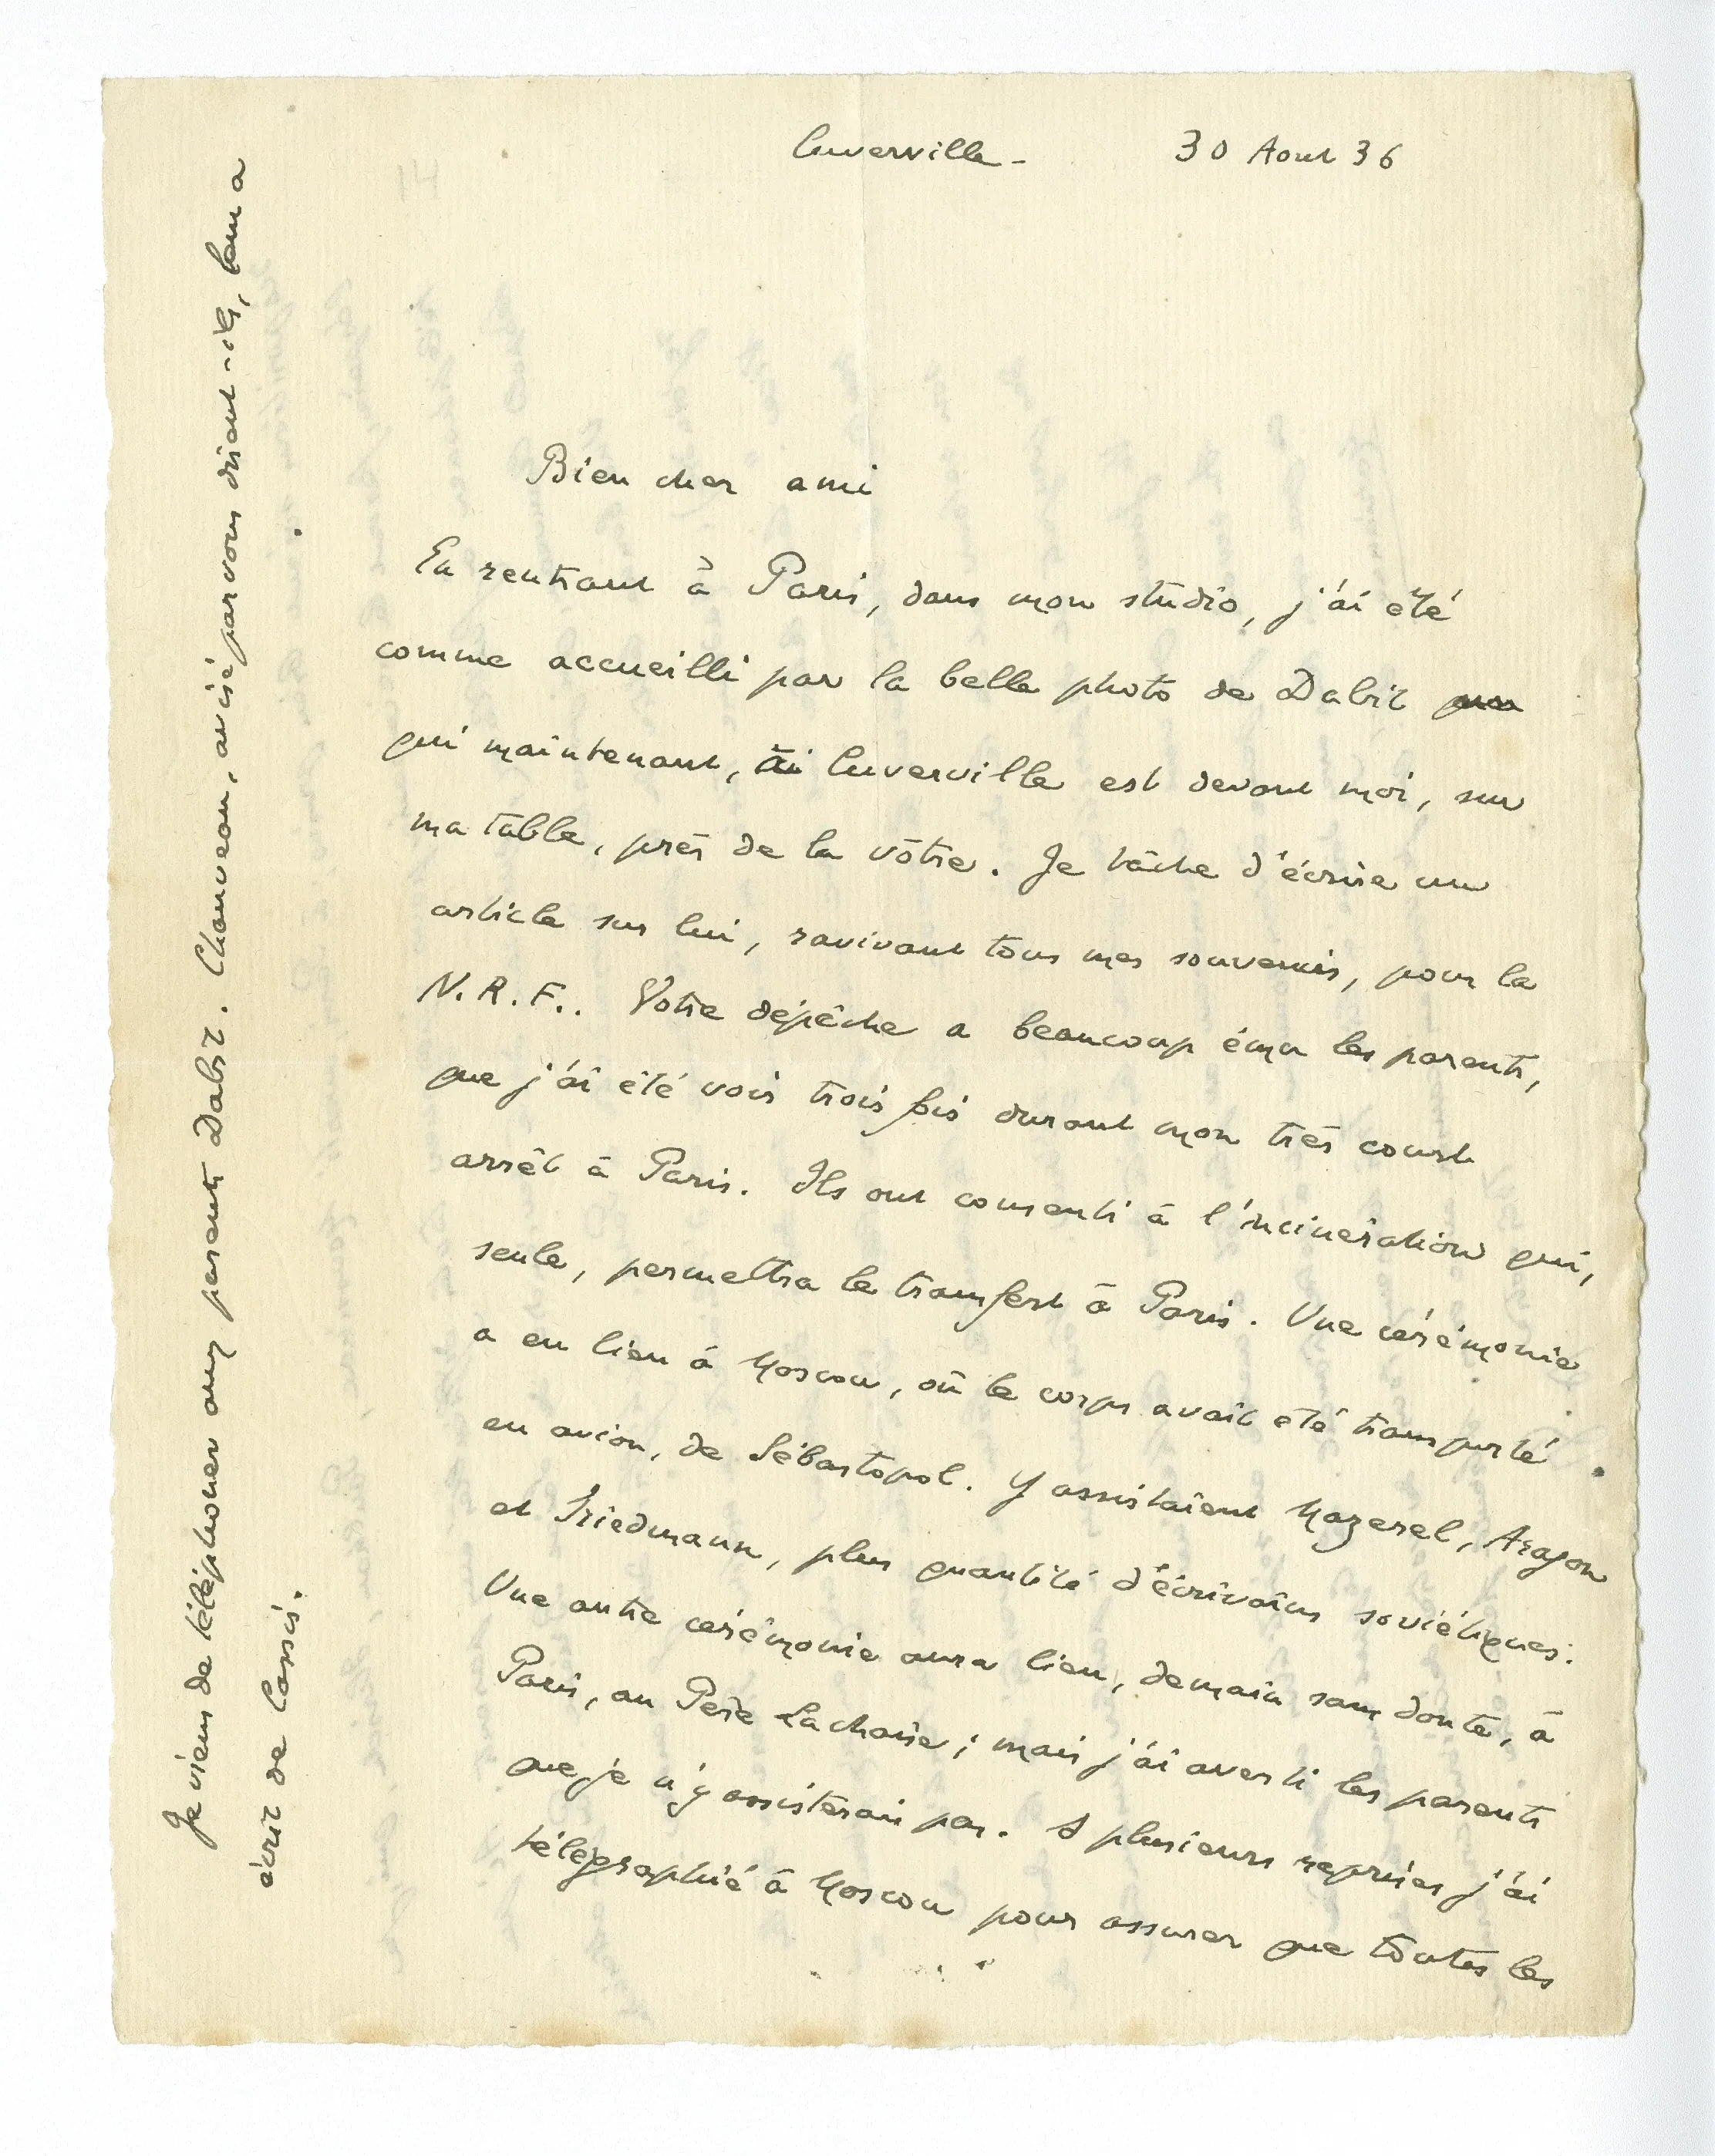 Cuverville - 30 Aout 36
Bien cher ami
En rentrant à Paris, dans mon studio, j'ai été
comme accueilli par la belle photo de Dabit
qui maintenant, à Cuverville est devant moi, sur
ma table, près de la vôtre. Je tâche d'écrire un
article sur lui, ravivant tous mes souvenirs, pour la
N.R.F.. Votre dépêche a beaucoup ému les parents,
que j'ai été voir trois fois durant mon très court
arrêt à Paris. Ils ont consenti à l'incinération qui,
seule, permettra le transfert à Paris. Une cérémonie
a eu lieu à Moscou, où le corps avait été transporté
en avion, de Sébastopol. Y assistaient Mazerel, Aragon
et Friedmann, plus quantité d'écrivains soviétiques.
Une autre cérémonie aura lieu, demain sans doute, à
Paris, au Père Lachaise ; mais j'ai averti les parents
que je n'y assisterais pas. A plusieurs reprises j'ai
télégraphié à Moscou pour assurer que toutes les
Je viens de téléphoner aux parents Dabit. Chauveau, avisé par vous disent-ils, leur a
écrit de Cassis.